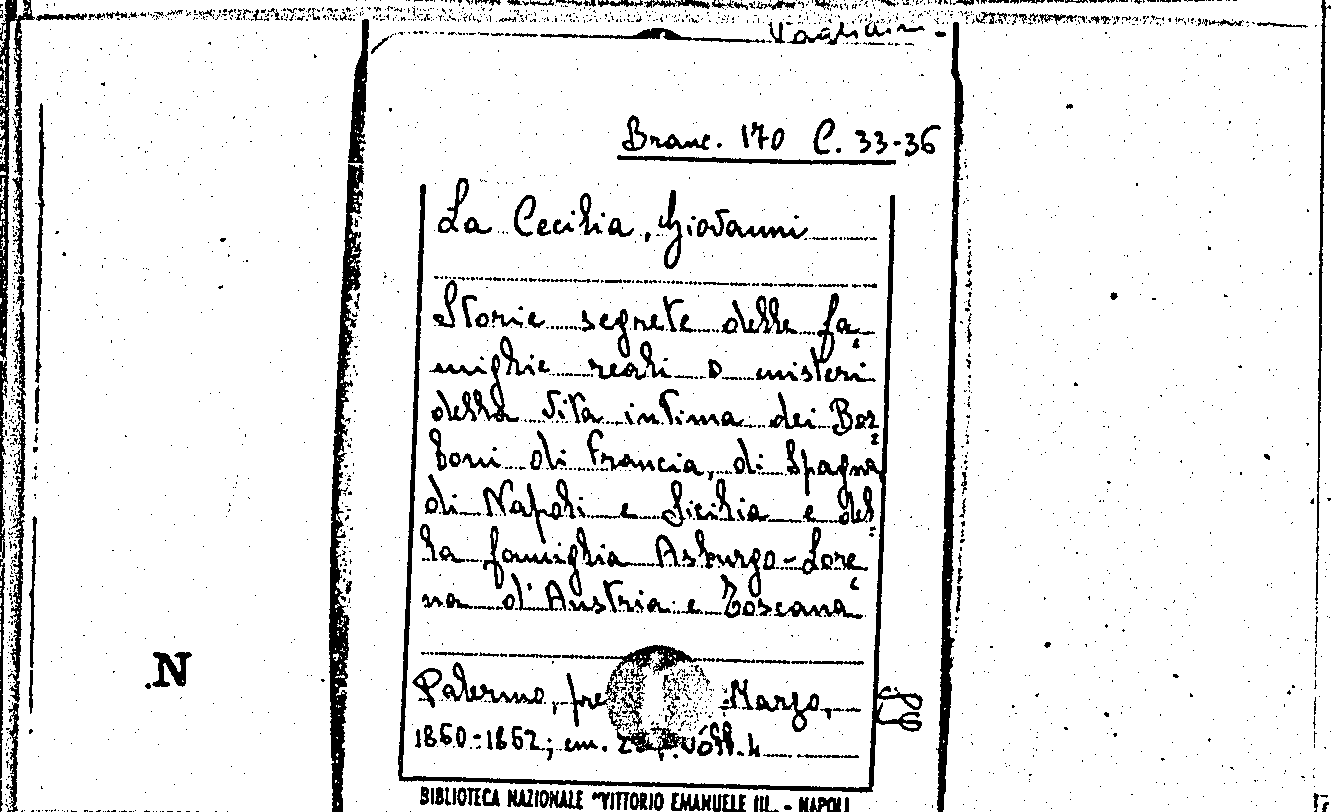 Branc. 170 C. 33-36
La Cecilia, Giovanni
Storie segrete delle fa-
miglie reali o misteri
della vita intima dei Bor-
boni di Francia, di Spagna
di Napoli e Sicilia e del-
la famiglia Asburgo-Lore-
na d'Austria e Toscana
Palermo, Marzo,
1860-1862; cm. voll. 4
N
BIBLIOTECA NAZIONALE "VITTORIO EMANUELE III. - NAPOLI